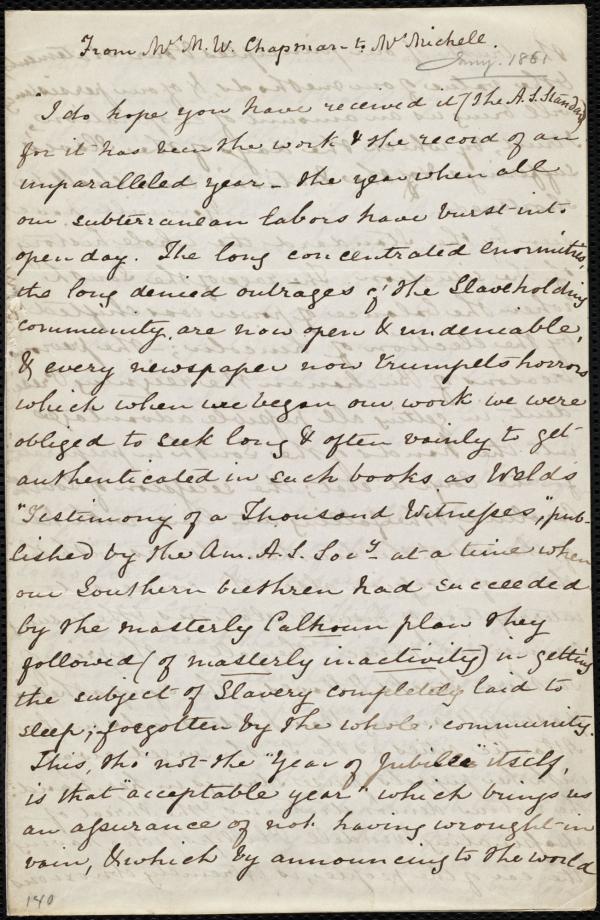 From Mrs M. W. Chapman to Mrs Michell.
Jany. 1861
"I do hope you have received it, (the A. S. Standard)
for it has been the work & the record of an
unparalleled year – the year when all
our subterranean labors have burst into
open day. The long concentrated enormities,
the long denied outrages of the Slaveholding
community, are now open & undeniable,
& every newspaper now trumpets horrors
which when we began our work we were
obliged to seek long & often vainly to get
authenticated in such books as Weld's
"Testimony of a Thousand Witnesses," pub-
lished by the Am. A. S. Socy. at a time when
our Southern brethren had succeeded
by the masterly Calhoun plan they
followed (of masterly inactivity) in getting
the subject of Slavery completely laid to
sleep, forgotten by the whole community.
This, tho' not the "Year of Jubilee" itself,
is that "acceptable year" which brings us
an assurance of not having wrought in
vain, & which by announcing to the world
140